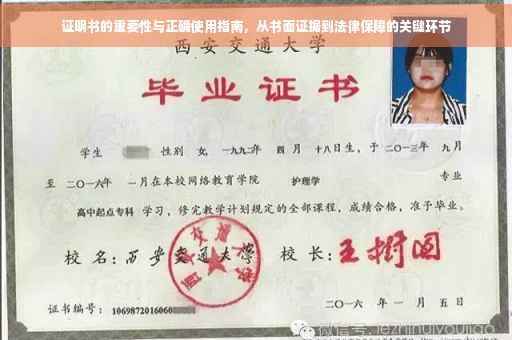 证明书的重要性与正确使用指南，从书面证据到法律保障的关键环节
西安交通大学
毕业证书
学生 性别 女，一九九二年 四月 十八日生，于二〇一三年 九月
至 二〇一六年 一月在本校网络教育学院 护理学 专业
高中起点专科 学习，修完教学计划规定的全部课程，成绩合格，准予毕业。
校名：西安交通大学 校长：王树国
西安交通大学
证书编号：1069872016060
二〇一六年 一月 五日
微信号: jezhihuiyoujiao